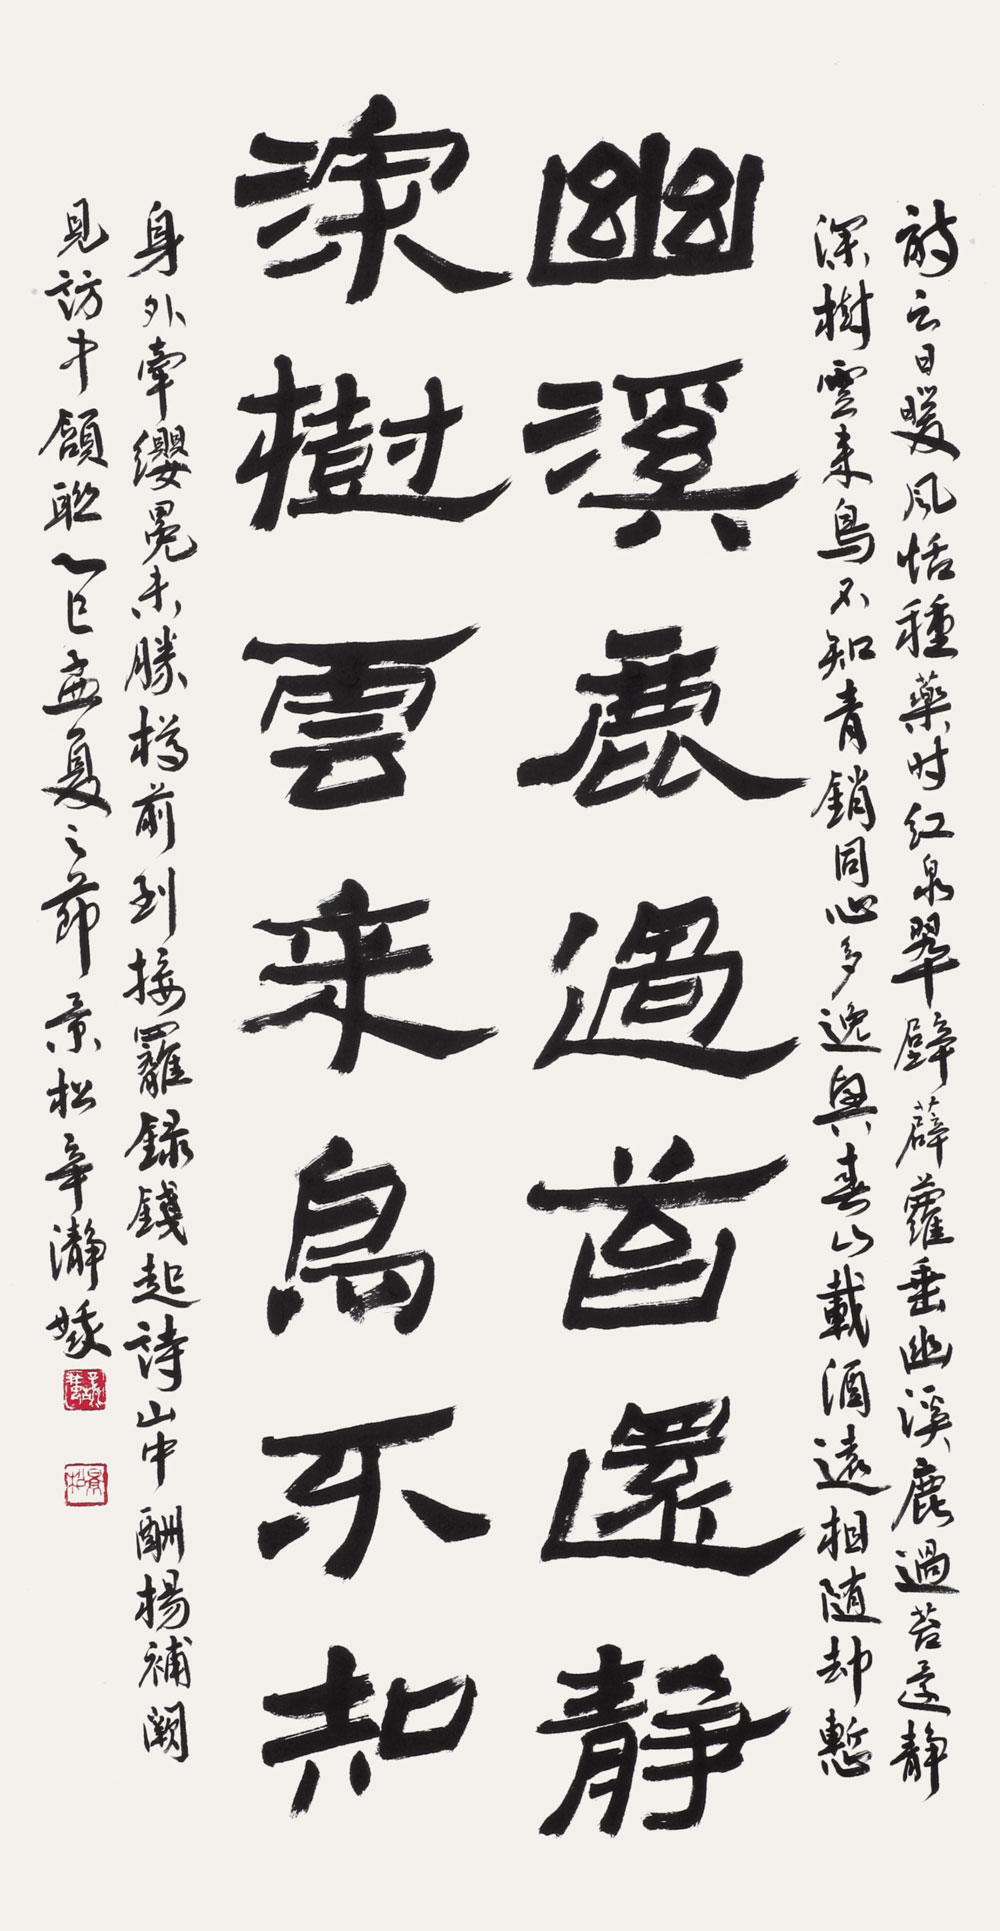 詩云日暖風恬種藥时紅泉翠壁薜蘿垂幽溪鹿過苔還静
深樹雲来鳥不知青銷同心多逸興春山載酒遠相随却慙
幽溪鹿過苔還静
深樹雲来鳥不知
身外牽纓冕未勝樽前到接䍦録錢起詩山中酬楊補闕
見訪中頷聯乙巳孟夏之節景松辛瀞